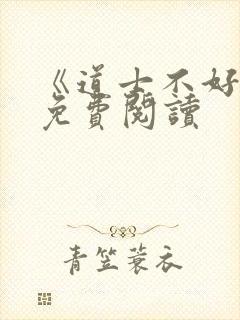 《道士不好
免費閱讀
青笠蓑衣